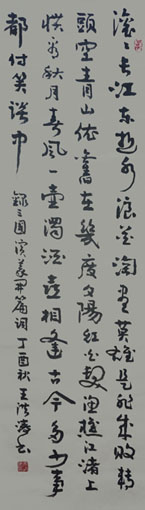 滚滚长江东逝水浪花淘尽英雄是非成败转
头空青山依旧在几度夕阳红白发渔樵江渚上
惯看秋月春风一壶浊酒喜相逢古今多少事
都付笑谈中 录三国演义开篇词丁酉秋王洪涛书